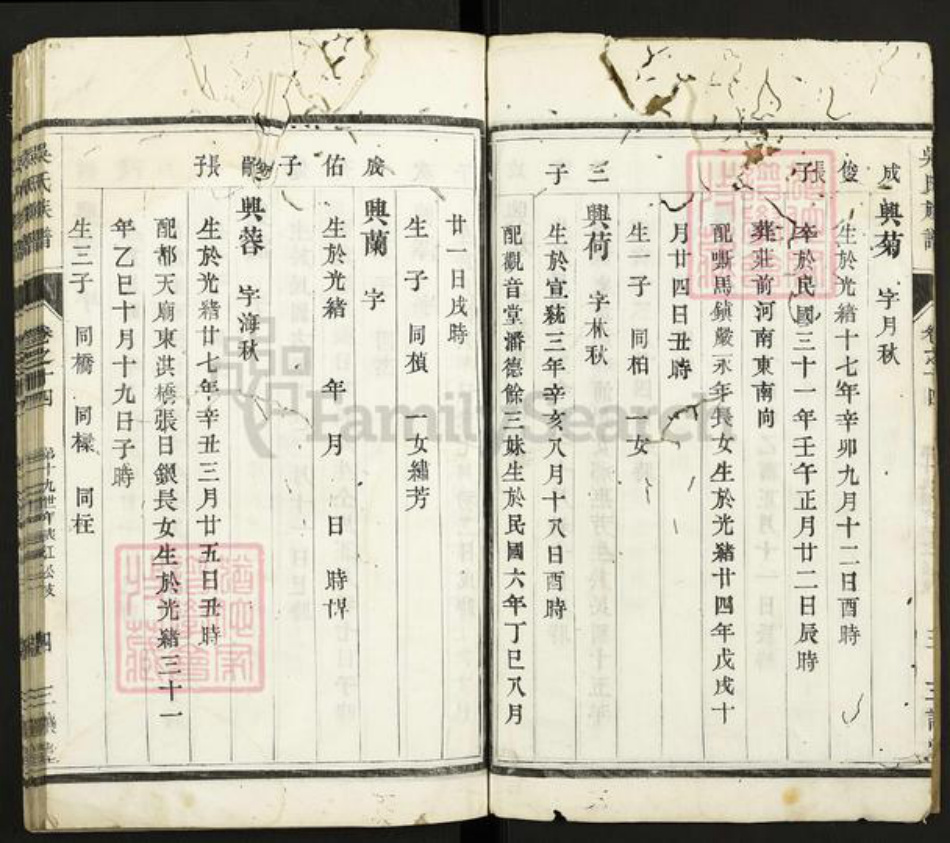 成俊張子
興菊 字月秋
生於光緒十七年辛卯九月十二日酉時
卒於民國三十一年壬午正月廿二日辰時
葬莊前河南東南向
配嘶馬鎮嚴永年長女生於光緒廿四年戊戌十
月廿四日丑時
生一子 同柏 一女
三子
興荷 字林秋
生於宣統三年辛亥八月十八日酉時
配觀音堂潘德餘三妹生於民國六年丁巳八月
廿一日戌時
生 子 同楨 一女繡芳
成佑子
興蘭 字
生於光緒 年 月 日 時
興蓉 字海秋
生於光緒廿七年辛丑三月廿五日丑時
配都天廟東洪橋張日銀長女生於光緒三十一
年乙巳十月十九日子時
生三子 同橋 同樑 同枉
吳氏族譜
卷之十四
四
FamilySearch